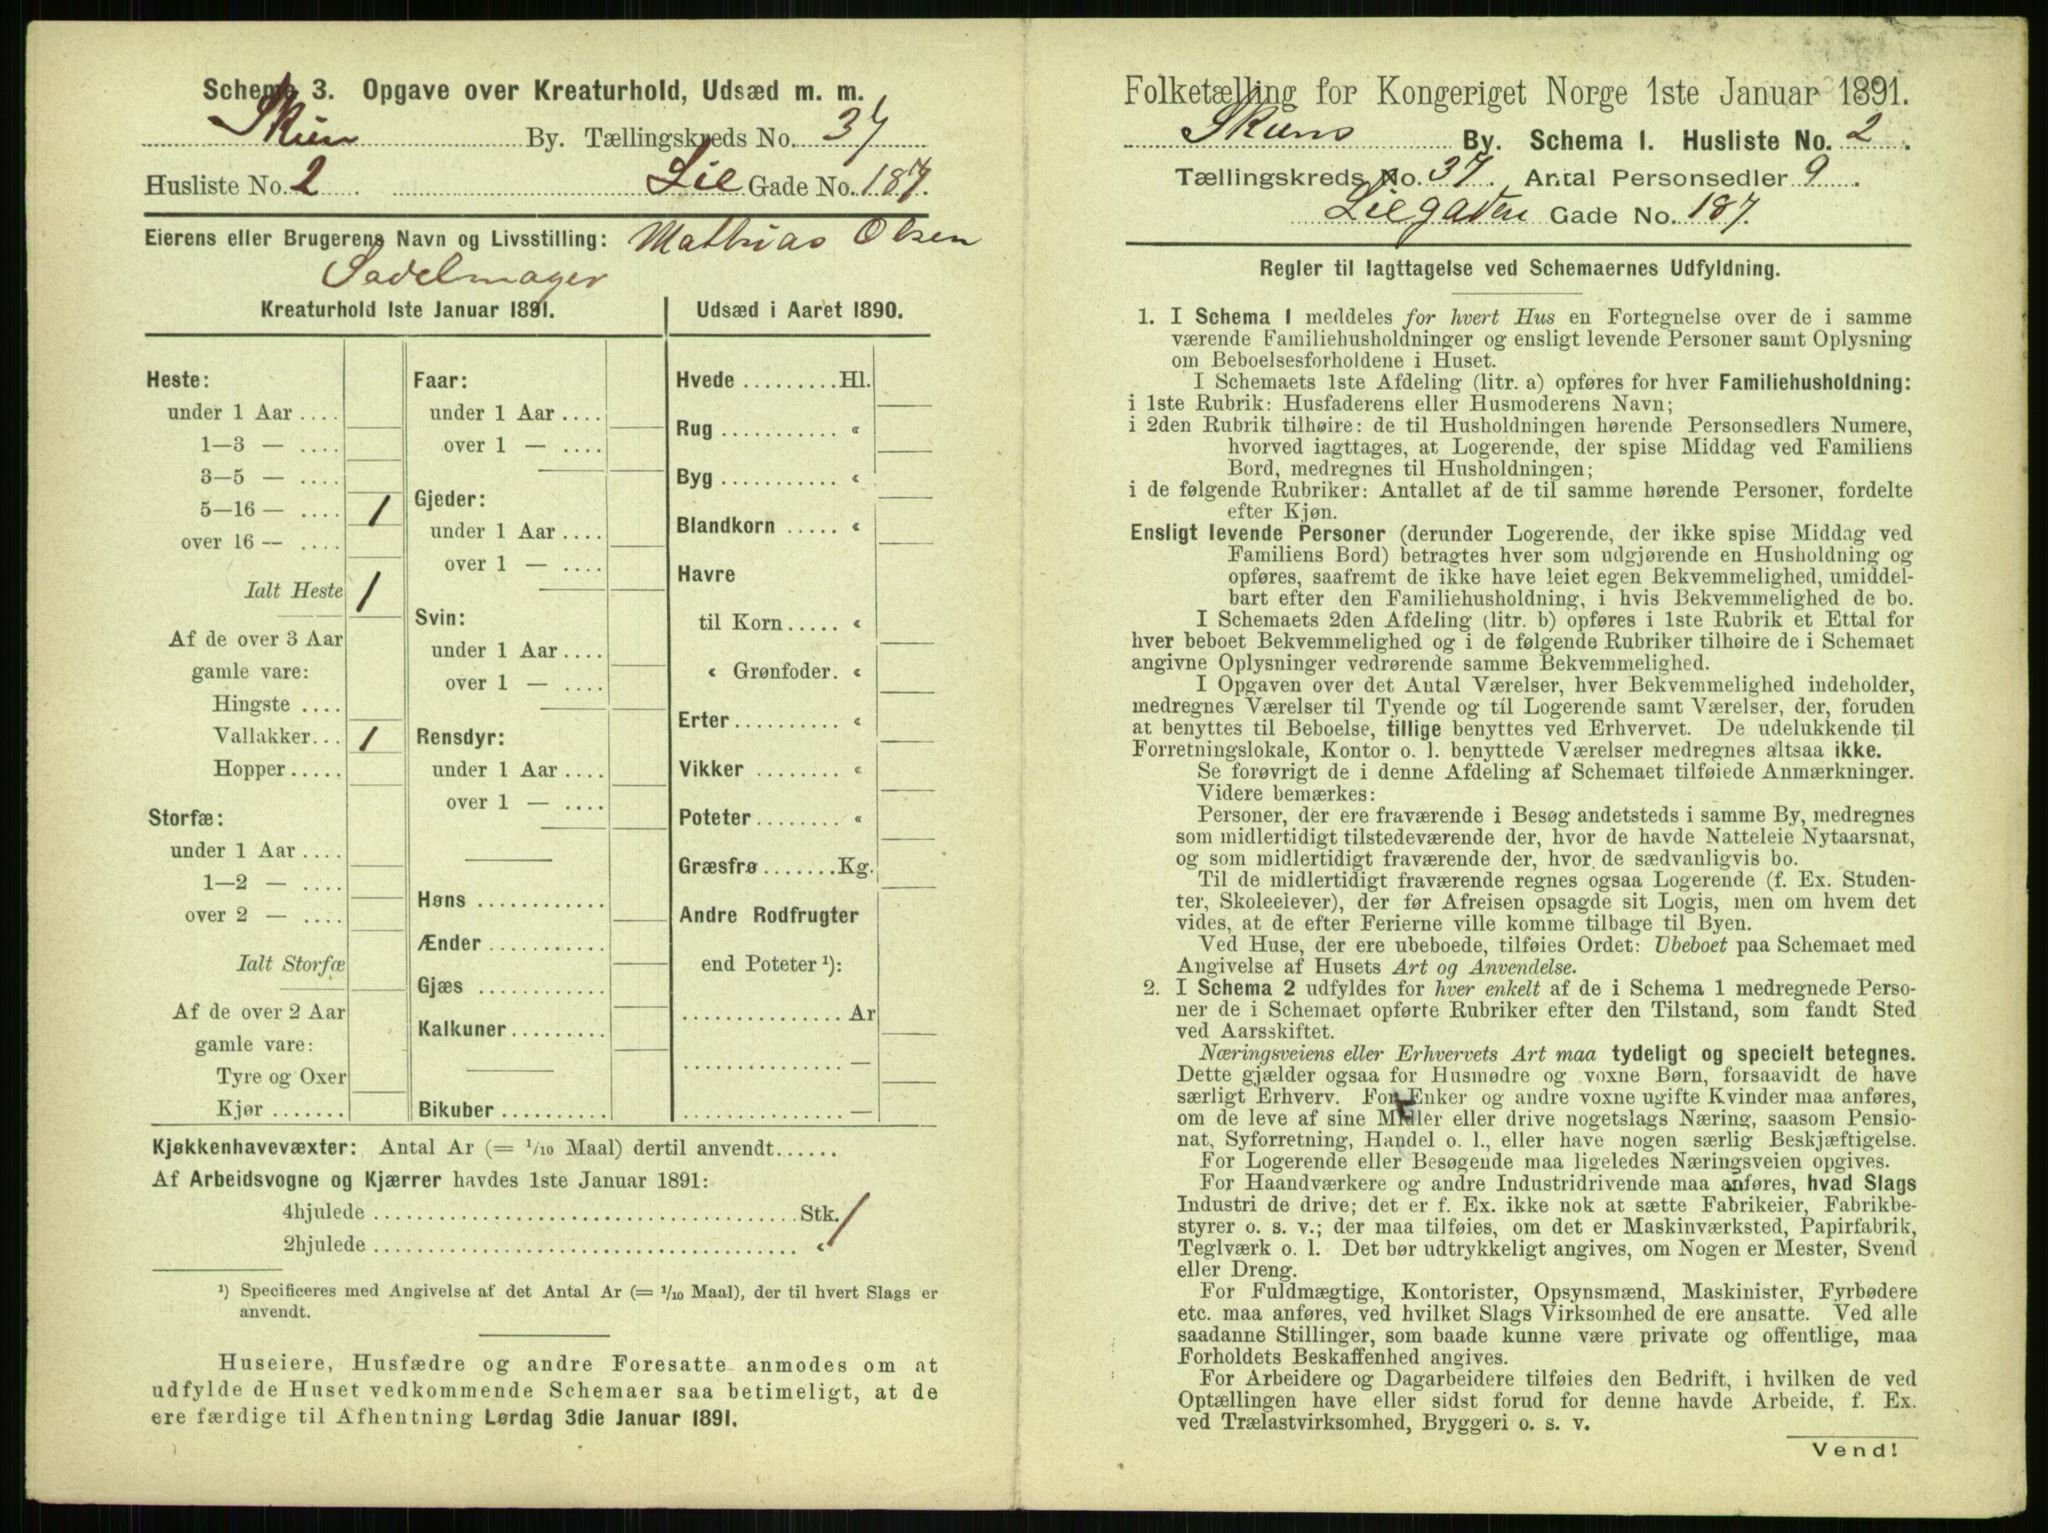 Schema 3. Opgave over Kreaturhold, Udsæd m. m.
Skien By. Tællingskreds No. 37
Husliste No. 2 Lie Gade No. 187.
Eierens eller Brugerens Navn og Livsstilling: Mathias Olsen
Sadelmager
Kreaturhold 1ste Januar 1891.
Heste:
under 1 Aar ....
1—3 — ....
3—5 — ....
5—16 — .... 1
over 16 — ....
Ialt Heste 1
Af de over 3 Aar
gamle vare:
Hingste ....
Vallakker... 1
Hopper.....
Storfæ:
under 1 Aar ....
1—2 — ....
over 2 — ....
Ialt Storfæ
Af de over 2 Aar
gamle vare:
Tyre og Oxer
Kjør .......
Faar:
under 1 Aar ....
over 1 — ....
Gjeder:
under 1 Aar ....
over 1 — ....
Svin:
under 1 Aar ....
over 1 — ....
Rensdyr:
under 1 Aar ....
over 1 — ....
Høns ............
Ænder ...........
Gjæs ............
Kalkuner.........
Bikuber ..........
Udsæd i Aaret 1890.
Hvede .........Hl.
Rug ........... «
Byg ........... «
Blandkorn ..... «
Havre
til Korn..... «
« Grønfoder. «
Erter.......... «
Vikker ........ «
Poteter ........ «
Græsfrø .......Kg.
Andre Rodfrugter
end Poteter ¹):
............... Ar
............... —
............... —
Kjøkkenhavevæxter: Antal Ar (= 1/10 Maal) dertil anvendt......
Af Arbeidsvogne og Kjærrer havdes 1ste Januar 1891:
4hjulede ........................................Stk. 1
2hjulede ........................................ «
¹) Specificeres med Angivelse af det Antal Ar (= 1/10 Maal), der til hvert Slags er
anvendt.
Huseiere, Husfædre og andre Foresatte anmodes om at
udfylde de Huset vedkommende Schemaer saa betimeligt, at de
ere færdige til Afhentning Lørdag 3die Januar 1891.
Folketælling for Kongeriget Norge 1ste Januar 1891.
Skiens By. Schema 1. Husliste No. 2.
Tællingskreds No. 37. Antal Personsedler 9.
Liegaden Gade No. 187.
Regler til Iagttagelse ved Schemaernes Udfyldning.
1. I Schema 1 meddeles for hvert Hus en Fortegnelse over de i samme
værende Familiehusholdninger og ensligt levende Personer samt Oplysning
om Beboelsesforholdene i Huset.
I Schemaets 1ste Afdeling (litr. a) opføres for hver Familiehusholdning:
i 1ste Rubrik: Husfaderens eller Husmoderens Navn;
i 2den Rubrik tilhøire: de til Husholdningen hørende Personsedlers Numere,
hvorved iagttages, at Logerende, der spise Middag ved Familiens
Bord, medregnes til Husholdningen;
i de følgende Rubriker: Antallet af de til samme hørende Personer, fordelte
efter Kjøn.
Ensligt levende Personer (derunder Logerende, der ikke spise Middag ved
Familiens Bord) betragtes hver som udgjørende en Husholdning og
opføres, saafremt de ikke have leiet egen Bekvemmelighed, umiddel-
bart efter den Familiehusholdning, i hvis Bekvemmelighed de bo.
I Schemaets 2den Afdeling (litr. b) opføres i 1ste Rubrik et Ettal for
hver beboet Bekvemmelighed og i de følgende Rubriker tilhøire de i Schemaet
angivne Oplysninger vedrørende samme Bekvemmelighed.
I Opgaven over det Antal Værelser, hver Bekvemmelighed indeholder,
medregnes Værelser til Tyende og til Logerende samt Værelser, der, foruden
at benyttes til Beboelse, tillige benyttes ved Erhvervet. De udelukkende til
Forretningslokale, Kontor o. l. benyttede Værelser medregnes altsaa ikke.
Se forøvrigt de i denne Afdeling af Schemaet tilføiede Anmærkninger.
Videre bemærkes:
Personer, der ere fraværende i Besøg andetsteds i samme By, medregnes
som midlertidigt tilstedeværende der, hvor de havde Natteleie Nytaarsnat,
og som midlertidigt fraværende der, hvor de sædvanligvis bo.
Til de midlertidigt fraværende regnes ogsaa Logerende (f. Ex. Studen-
ter, Skoleelever), der før Afreisen opsagde sit Logis, men om hvem det
vides, at de efter Ferierne ville komme tilbage til Byen.
Ved Huse, der ere ubeboede, tilføies Ordet: Ubeboet paa Schemaet med
Angivelse af Husets Art og Anvendelse.
2. I Schema 2 udfyldes for hver enkelt af de i Schema 1 medregnede Perso-
ner de i Schemaet opførte Rubriker efter den Tilstand, som fandt Sted
ved Aarsskiftet.
Næringsveiens eller Erhvervets Art maa tydeligt og specielt betegnes.
Dette gjælder ogsaa for Husmødre og voxne Børn, forsaavidt de have
særligt Erhverv. For Enker og andre voxne ugifte Kvinder maa anføres,
om de leve af sine Midler eller drive nogetslags Næring, saasom Pensio-
nat, Syforretning, Handel o. l., eller have nogen særlig Beskjæftigelse.
For Logerende eller Besøgende maa ligeledes Næringsveien opgives.
For Haandværkere og andre Industridrivende maa anføres, hvad Slags
Industri de drive; det er f. Ex. ikke nok at sætte Fabrikeier, Fabrikbe-
styrer o. s. v.; der maa tilføies, om det er Maskinværksted, Papirfabrik,
Teglværk o. l. Det bør udtrykkeligt angives, om Nogen er Mester, Svend
eller Dreng.
For Fuldmægtige, Kontorister, Opsynsmænd, Maskinister, Fyrbødere
etc. maa anføres, ved hvilket Slags Virksomhed de ere ansatte. Ved alle
saadanne Stillinger, som baade kunne være private og offentlige, maa
Forholdets Beskaffenhed angives.
For Arbeidere og Dagarbeidere tilføies den Bedrift, i hvilken de ved
Optællingen have eller sidst forud for denne havde Arbeide, f. Ex.
ved Trælastvirksomhed, Bryggeri o. s. v.
Vend!